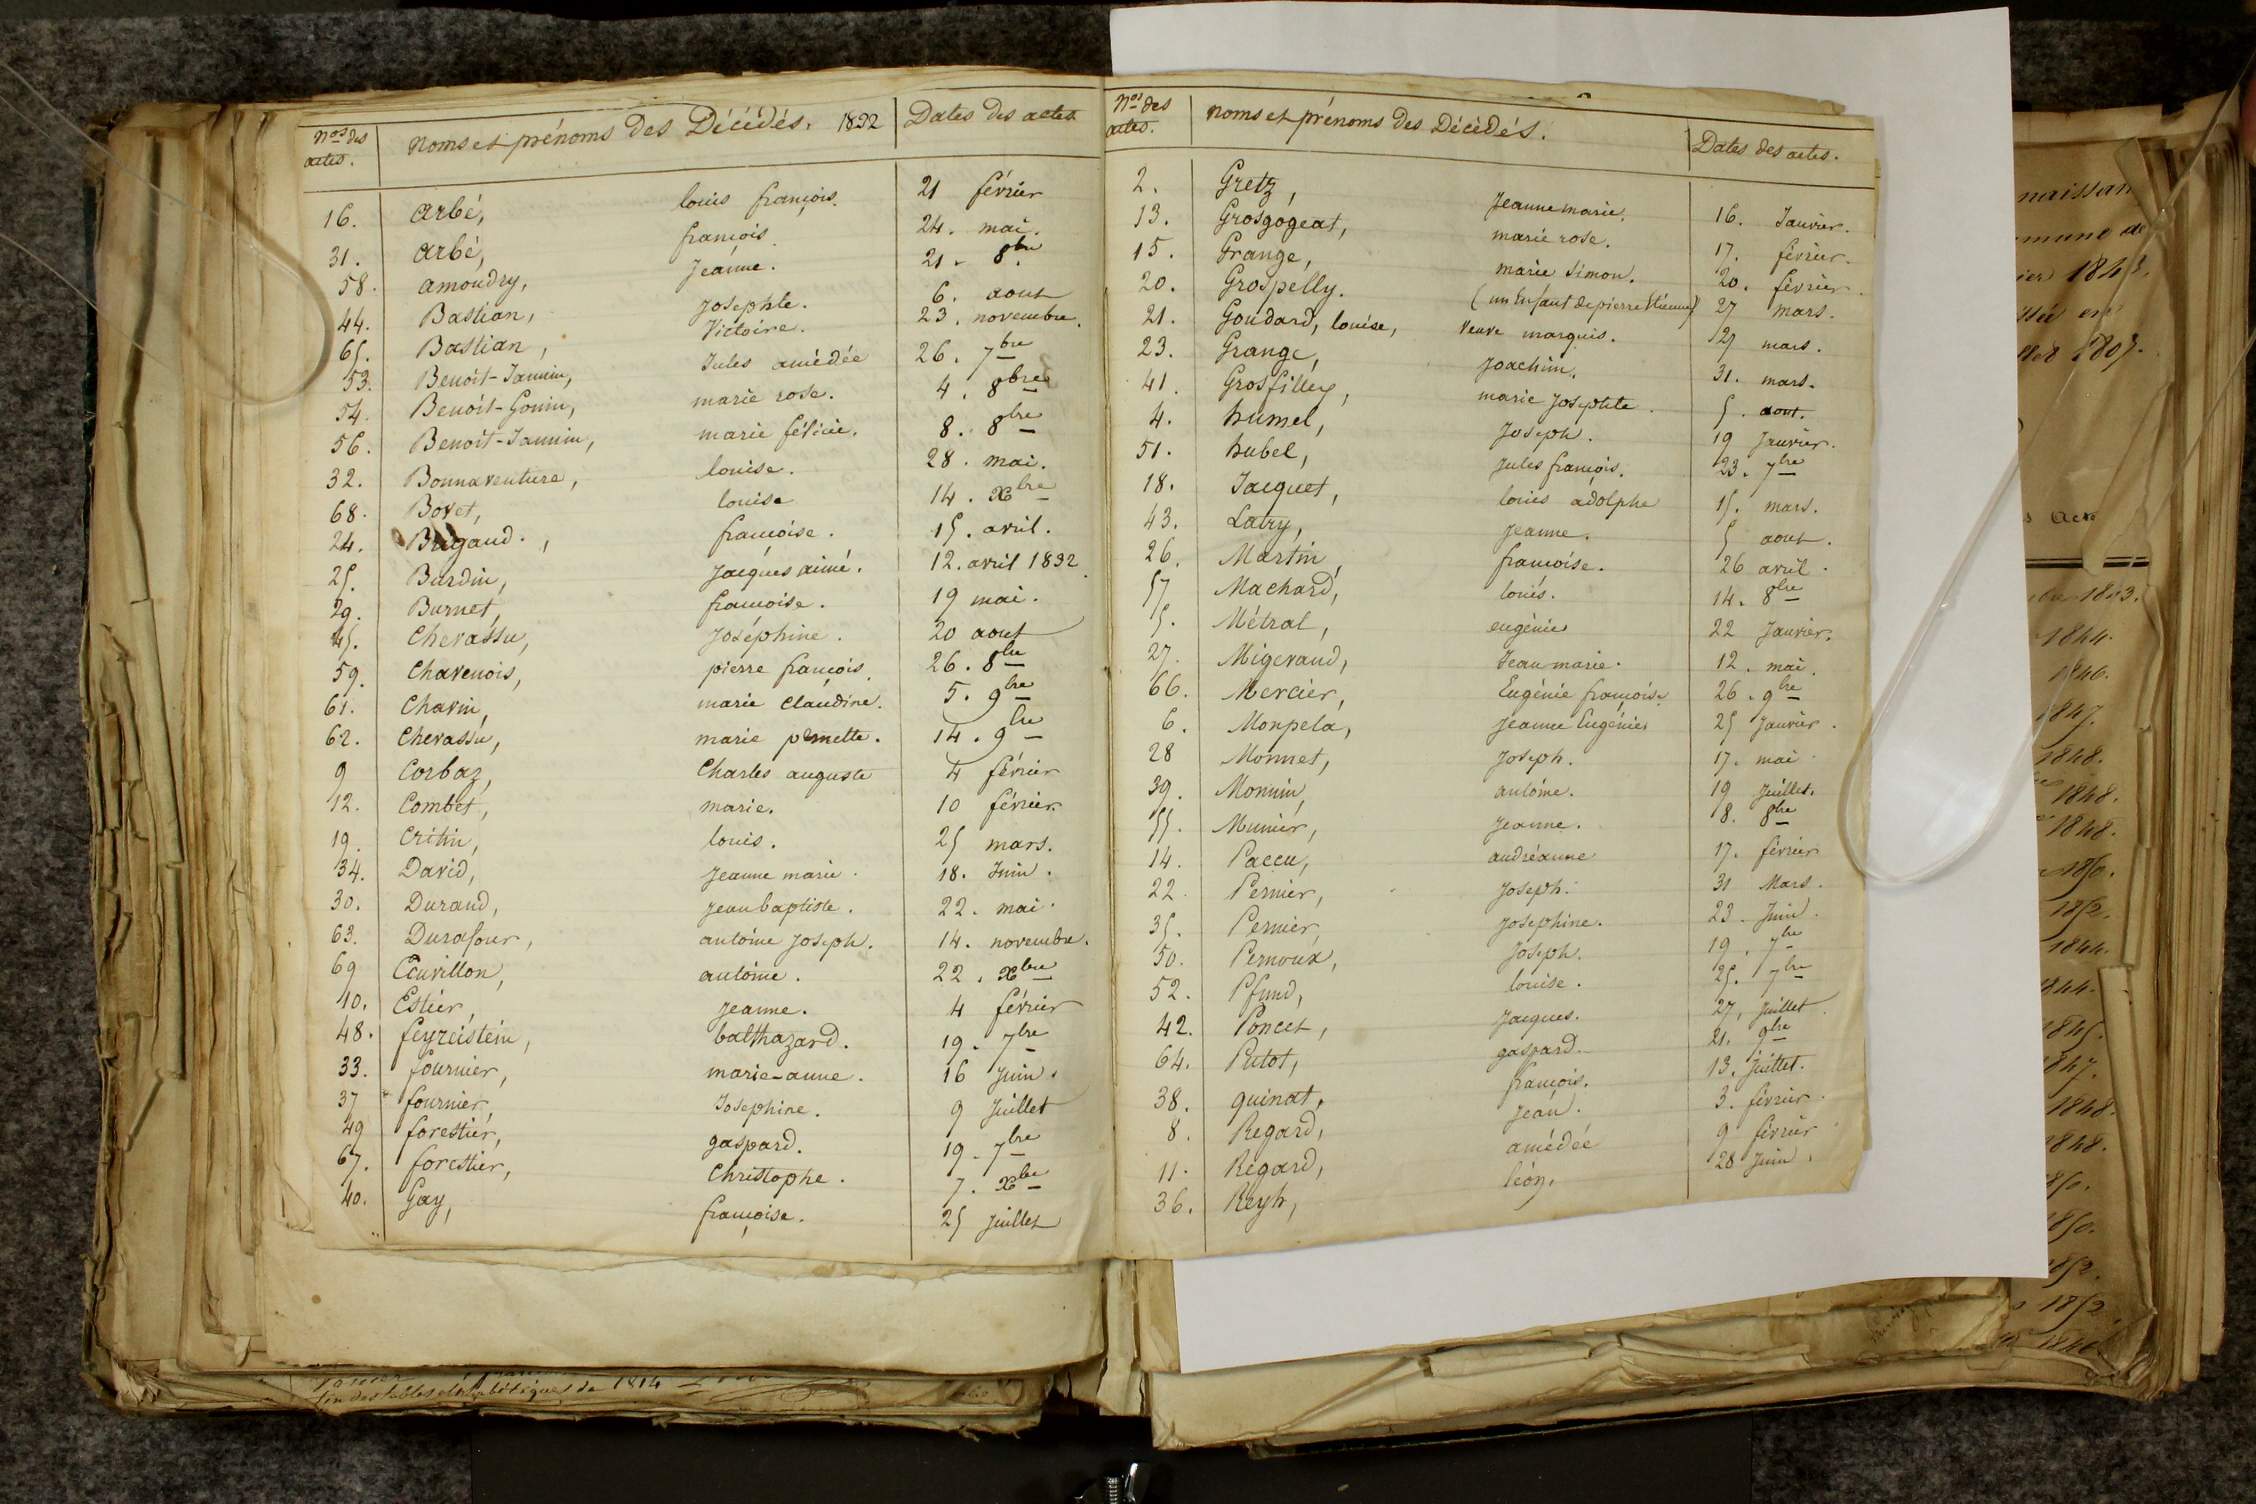 Nos des actes. Noms et prénoms des Décédés. 1832 Dates des actes
16. arbé, louis françois. 21 février
31. arbé, françois. 24. mai.
58. amoudry, Jeanne. 21. 8bre
44. Bastian, Josephte. 6. aout
65. Bastian, Victoire. 23. novembre.
53. Benoit-Jannin, Jules amédée 26. 7bre
54. Benoit-Gonin, marie rose. 4. 8bre
56. Benoit-Jannin, marie félicie. 8. 8bre
32. Bonnaventure, louise. 28. mai.
68. Bovet, louise 14. Xbre
24. Brigaud., françoise. 15. avril.
25. Burdin, Jacques aimé. 12. avril 1832
29. Burnet, françoise. 19 mai.
45. Chevassu, Joséphine. 20 aout
59. Chavenois, pierre françois. 26. 8bre
61. Chavin, marie Claudine. 5. 9bre
62. Chevassu, marie pernette. 14. 9bre
9 Corbaz, Charles auguste 4 février
12. Combet, marie. 10 février.
19. Critin, louis. 25 mars.
34. David, Jeanne marie. 18. Juin.
30. Durand, Jean baptiste. 22. mai.
63. Durafour, antoine Joseph. 14. novembre.
69 Ecuvillon, antoine. 22. Xbre
10. Estier, Jeanne. 4 février
48. feyzeistein, balthazard. 19. 7bre
33. fournier, marie-anne. 16 Juin.
37 fournier, Josephine. 9 Juillet
49 forestier, gaspard. 19. 7bre
67. forestier, Christophe. 7. Xbre
40. Gay, françoise. 25 Juillet
Nos des actes. Noms et prénoms des Décédés. Dates des actes.
2. Gretz, Jeanne marie. 16. Janvier.
13. Grosgogeat, marie rose. 17. février.
15. Grange, marie Simon. 20. février.
20. Grospelly. (un Enfant de pierre Etienne) 27 mars.
21. Goudard, louise, Veuve marquis. 27 mars.
23. Grange, Joachim. 31. mars.
41. Grosfilley, marie Josephte. 5. aout.
4. humel, Joseph. 19 Janvier.
51. hubel, Jules françois. 23. 7bre
18. Jacquet, louis adolphe 15. mars.
43. Latry, Jeanne. 5 aout.
26. Martin, françoise. 26 avril.
57 Machard, louis. 14. 8bre
5. Métral, eugénie 22 Janvier.
27. Migeraud, Jean marie. 12. mai.
66. Mercier, Eugénie françoise. 26. 9bre
6. Monpela, Jeanne Eugénie 25 Janvier.
28 Monnet, Joseph. 17. mai
39. Monnin, antoine. 19 Juillet.
55. Munier, Jeanne. 8. 8bre
14. Paccu, andréanne 17. février
22. Pernier, Joseph. 31 Mars.
35. Pernier, Josephine. 23. Juin.
50. Pernoux, Joseph. 19. 7bre
52. Pfund, louise. 25. 7bre
42. Poncet, Jacques. 27, Juillet.
64. Putot, gaspard. 21. 9bre
38. quinat, françois. 13. Juillet.
8. Regard, Jean. 3. février.
11. Regard, amédée 9 février
36. Reyh, léon. 28 Juin.
fin des tables alphabétiques de 1814